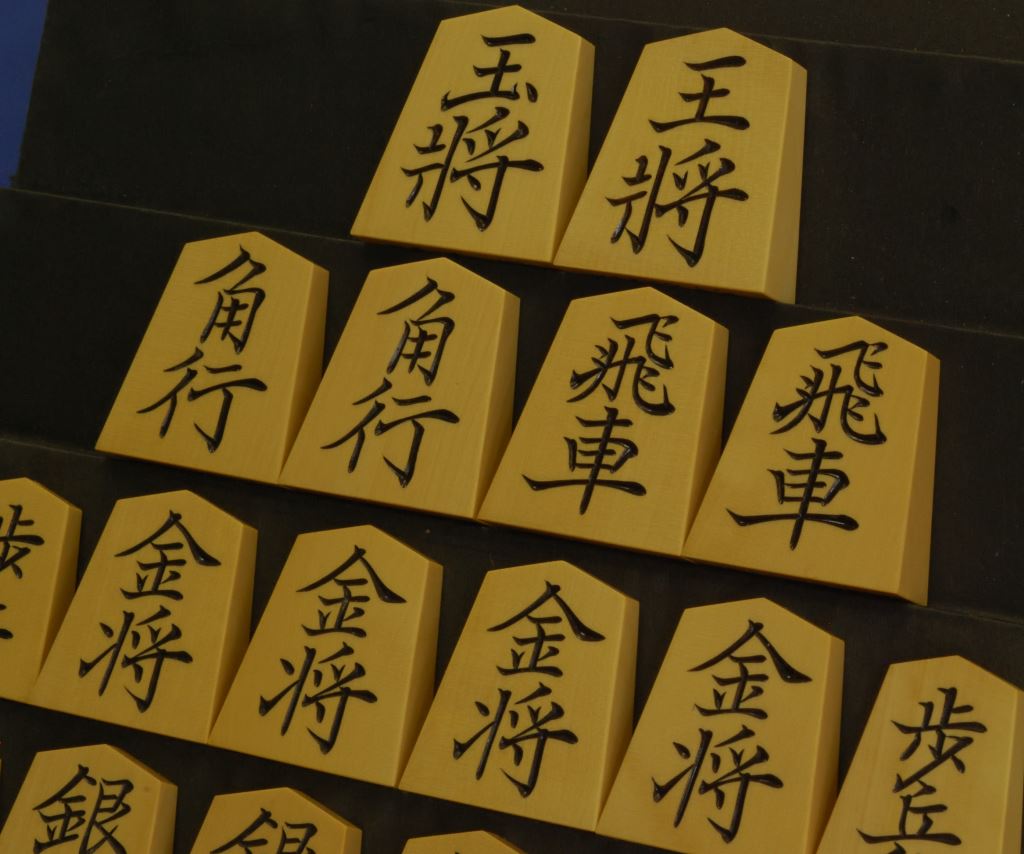 玉將
王將
角行
角行
飛車
飛車
歩
金将
金将
金将
金将
歩兵
銀
銀